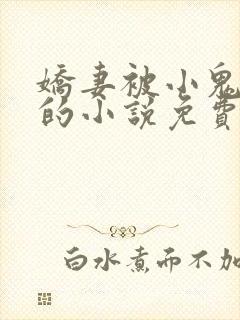 嬌妻被小鬼
的小說免費
白水煮而不加